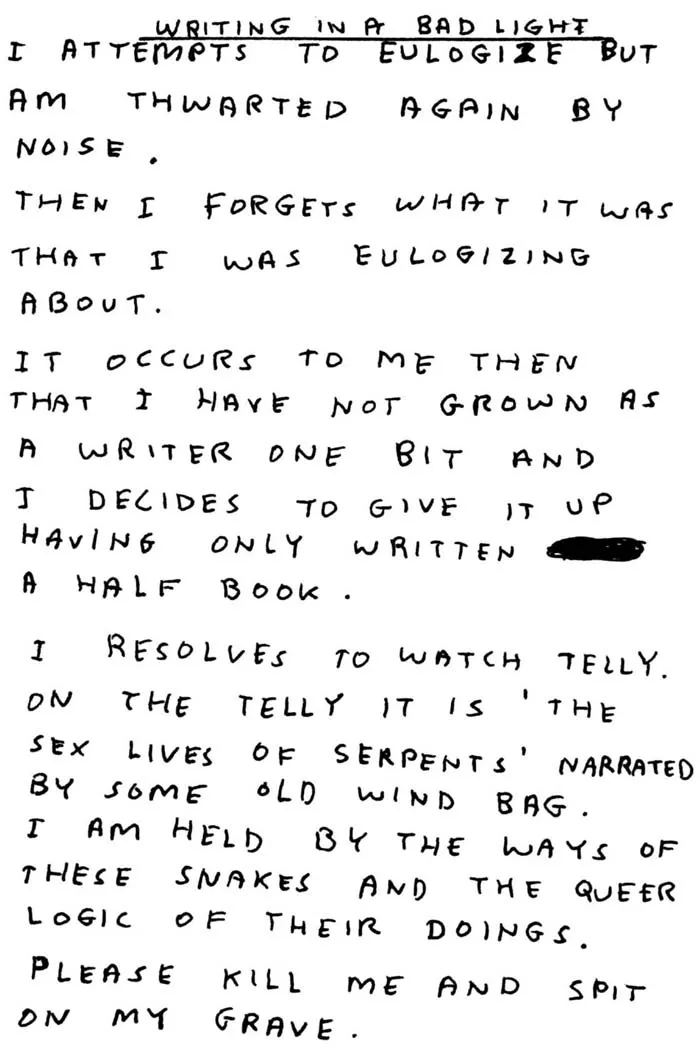 WRITING IN A BAD LIGHT
I ATTEMPTS TO EULOGIZE BUT
AM THWARTED AGAIN BY
NOISE.
THEN I FORGETS WHAT IT WAS
THAT I WAS EULOGIZING
ABOUT.
IT OCCURS TO ME THEN
THAT I HAVE NOT GROWN AS
A WRITER ONE BIT AND
I DECIDES TO GIVE IT UP
HAVING ONLY WRITTEN
A HALF BOOK.
I RESOLVES TO WATCH TELLY.
ON THE TELLY IT IS 'THE
SEX LIVES OF SERPENTS' NARRATED
BY SOME OLD WIND BAG.
I AM HELD BY THE WAYS OF
THESE SNAKES AND THE QUEER
LOGIC OF THEIR DOINGS.
PLEASE KILL ME AND SPIT
ON MY GRAVE.